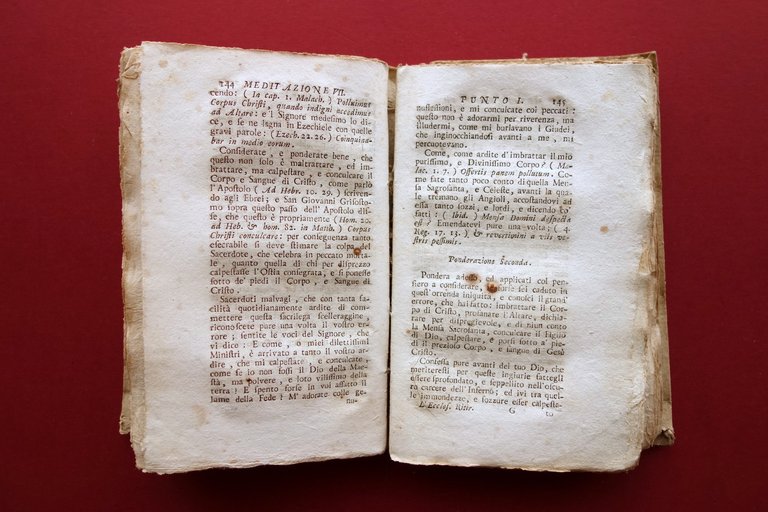 244 MEDITAZIONE VII.
cendo: ( In cap. 1. Malach. ) Polluimus
Corpus Christi, quando indigni accedimus
ad Altare: e'l Signore medesimo lo di-
ce, e se ne lagna in Ezechiele con quelle
gravi parole: ( Ezech. 22. 26. ) Coinquina-
bar in medio eorum.
Considerate, e ponderate bene, che
questo non solo è maltrattare, ed im-
brattare, ma calpestare, e conculcare il
Corpo e Sangue di Cristo, come parlò
l'Apostolo ( Ad Hebr. 10. 29. ) scriven-
do agli Ebrei; e San Giovanni Grisosto-
mo sopra questo passo dell' Apostolo dis-
se, che questo è propriamente ( Hom. 20.
ad Heb. & hom. 82. in Matth. ) Corpus
Christi conculcare: per conseguenza tanto
esecrabile si deve stimare la colpa del
Sacerdote, che celebra in peccato morta-
le, quanto quella di chi per disprezzo
calpestasse l'Ostia consegrata, e si ponesse
sotto de' piedi il Corpo, e Sangue di
Cristo.
Sacerduti malvagi, che con tanta fa-
cilità quotidianamente ardite di com-
mettere questa sacrilega scelleraggine,
riconoscete pure una volta il vostro er-
rore; sentite le voci del Signore, che
vi dice: E come, o miei dilettissimi
Ministri, è arrivato a tanto il vostro ar-
dire, che mi calpestate, e conculcate,
come se io non fossi il Dio della Mae-
stà, ma polvere, e loto vilissimo della
terra? E spento forse in voi affatto il
lume della Fede? M' adorate colle ge-
nu-
PUNTO I. 145
nuflessioni, e mi conculcate coi peccati:
questo non è adorarmi per riverenza, ma
illudermi, come mi burlavano i Giudei,
che inginocchiandosi avanti a me, mi
percuotevano.
Come, come ardite d'imbrattar il mio
purissimo, e Divinissimo Corpo? ( Ma-
lac. 1. 7. ) Offertis panem pollutum. Co-
me fate tanto poco conto di quella Men-
sa Sagrosanta, e Celeste, avanti la qua-
le tremano gli Angioli, accostandovi ad
essa tanto sozzi, e lordi, e dicendo co'
fatti: ( Ibid. ) Mensa Domini despecta
est? Emendatevi pure una volta: ( 4.
Reg. 17. 13. ) & revertimini a viis ve-
stris pessimis.
Ponderazione Seconda.
Pondera adesso, ed applicati col pen-
siero a considerare, se forse sei caduto in
quest'orrenda iniquità, e conosci il grand'
errore, che hai fatto: imbrattare il Cor-
po di Cristo, profanare l'Altare, dichia-
rare per dispregievole, e di niun conto
la Mensa Sacrosanta, conculcare il Figlio
di Dio, calpestare, e porsi sotto a pie-
di il prezioso Corpo, e sangue di Gesù
Cristo.
Confessa pure avanti del tuo Dio, che
meriteresti per queste ingiurie fattegli
essere sprofondato, e seppellito nell'oscu-
ra carcere dell' Inferno; ed ivi tra quel-
le immondezze, e sozzure esser calpesta-
L'Eccles. Ritir. G to